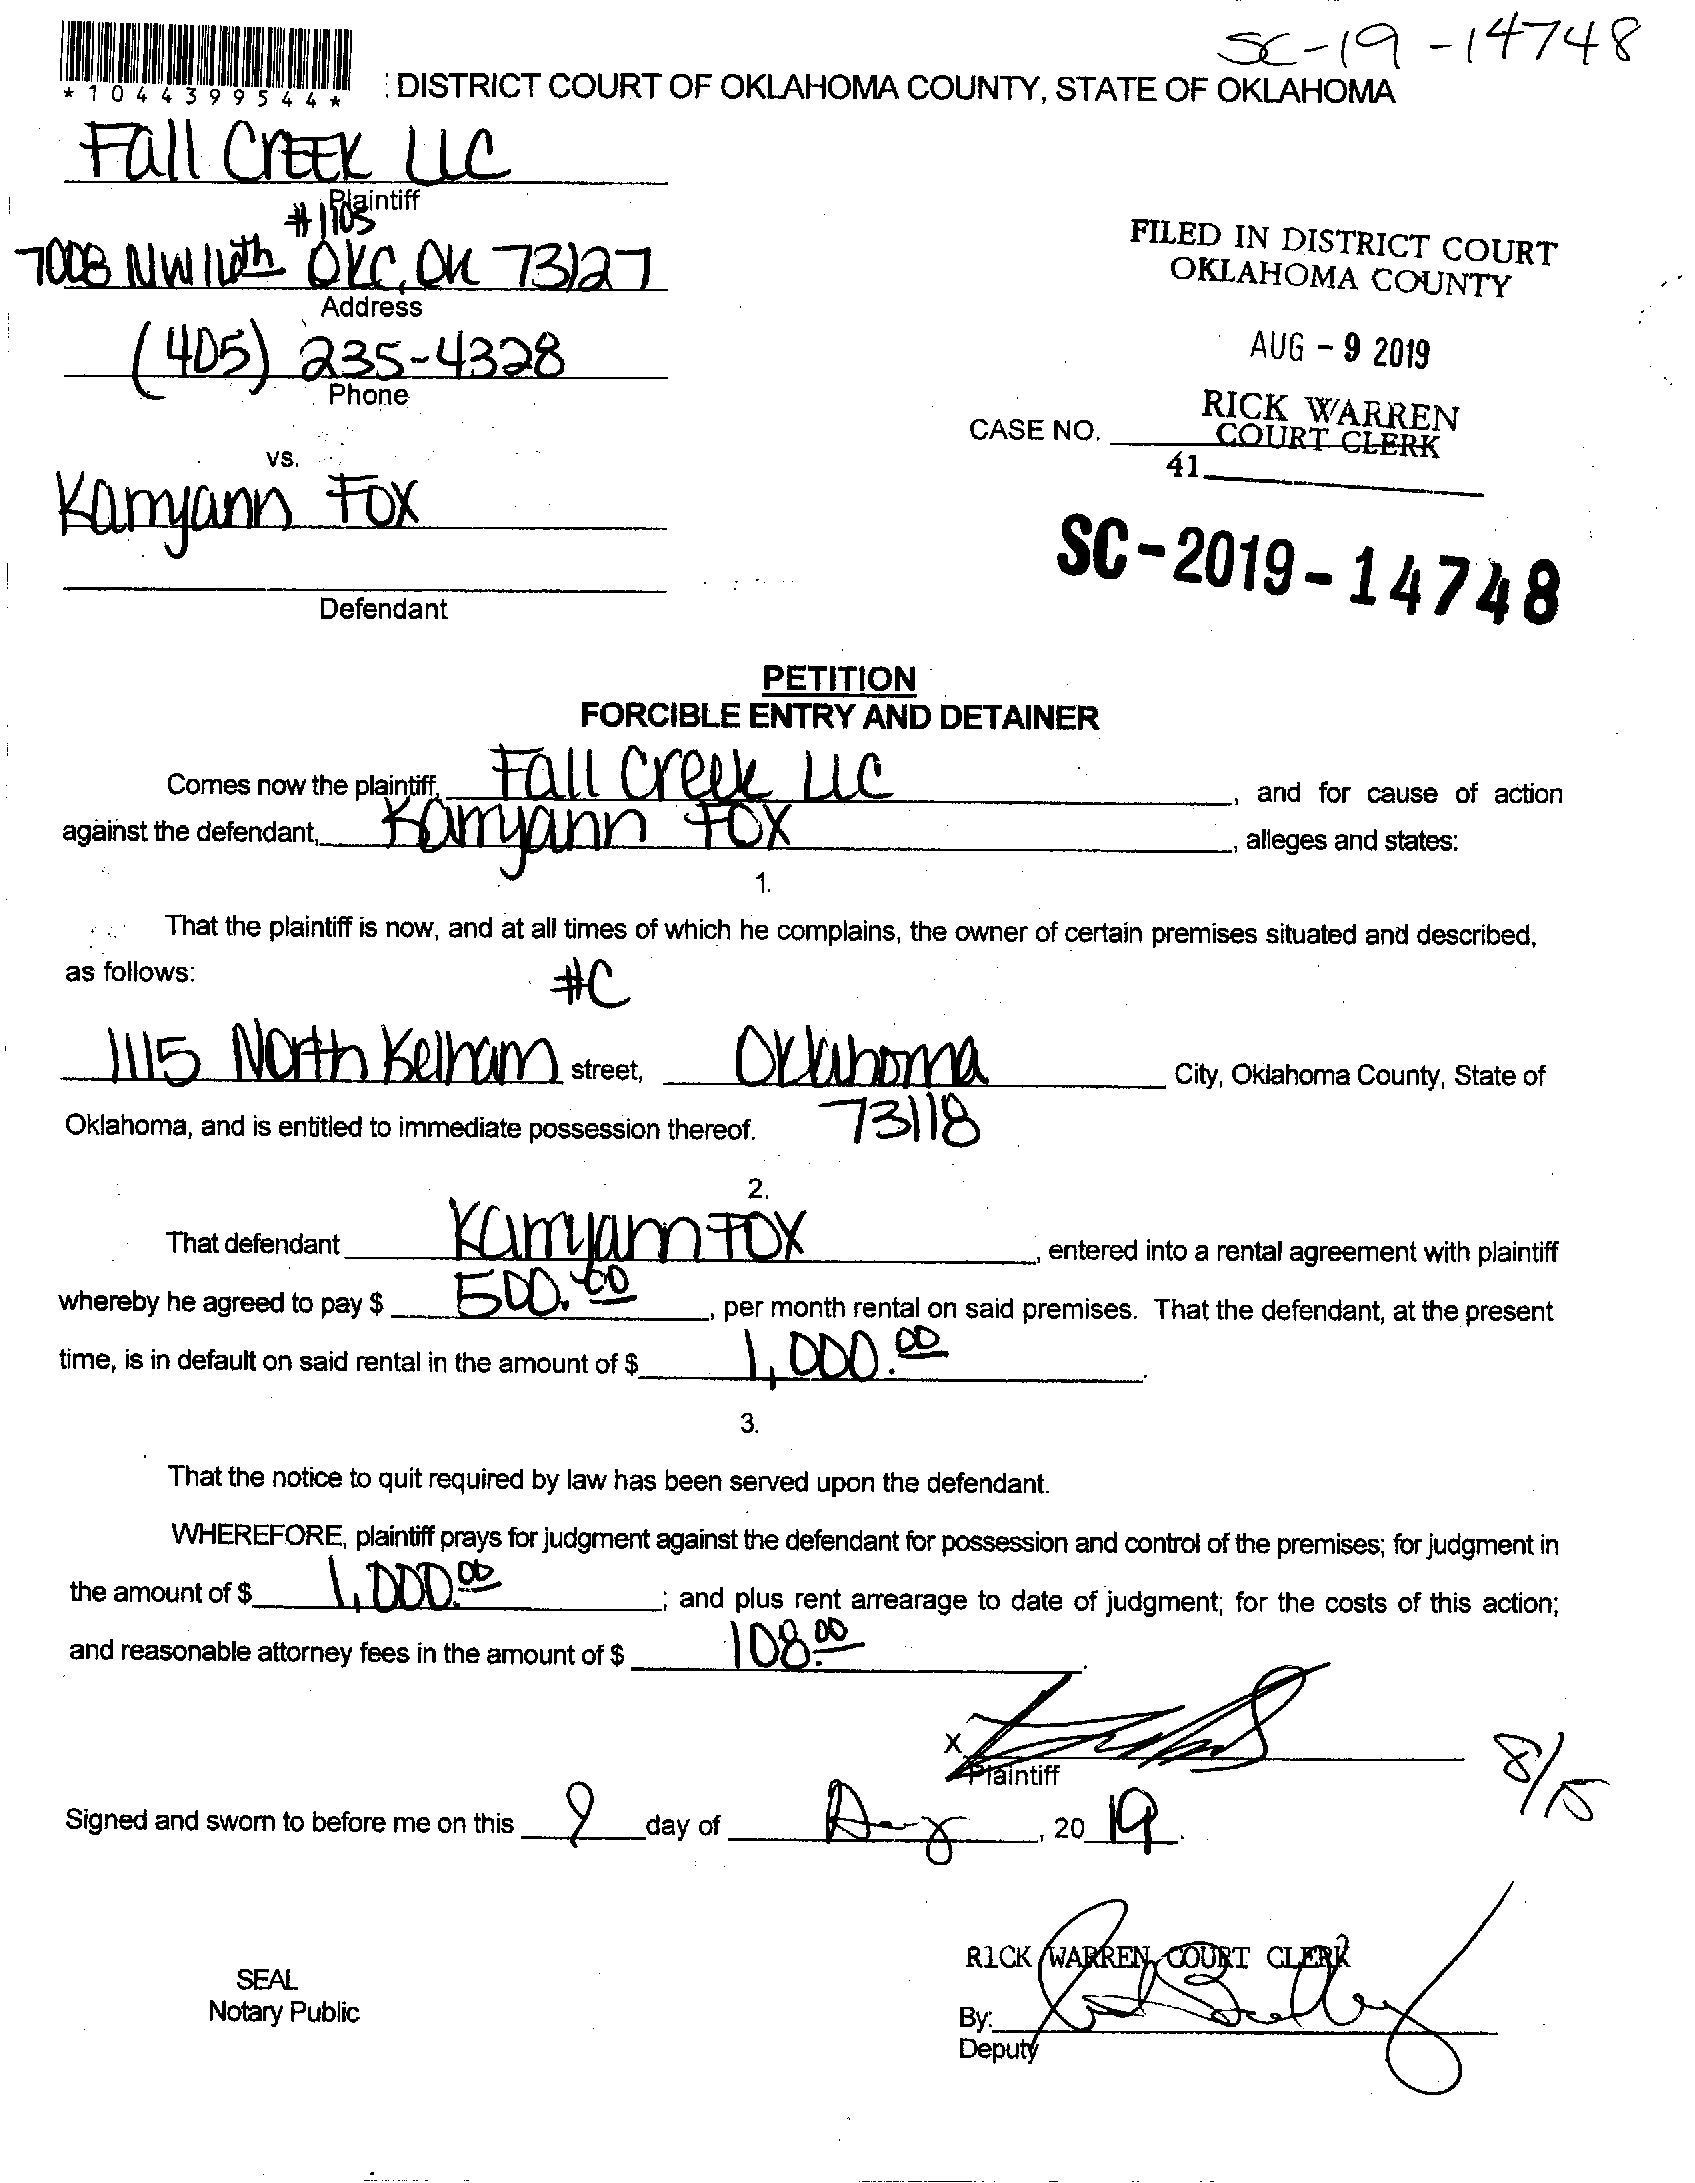 SC-19-14748
*1044399544*
: DISTRICT COURT OF OKLAHOMA COUNTY, STATE OF OKLAHOMA
Fall Creek LLC
Plaintiff
#1105
7008 NW 16th OKC, OK 73127
Address
(405) 235-4328
Phone
vs.
Kamyann Fox
Defendant
FILED IN DISTRICT COURT
OKLAHOMA COUNTY
AUG - 9 2019
RICK WARREN
CASE NO. COURT CLERK
41
SC-2019-14748
PETITION
FORCIBLE ENTRY AND DETAINER
Comes now the plaintiff, Fall Creek LLC, and for cause of action
against the defendant, Kamyann Fox, alleges and states:
1.
That the plaintiff is now, and at all times of which he complains, the owner of certain premises situated and described,
as follows:
#C
1115 North Kelham street, Oklahoma City, Oklahoma County, State of
Oklahoma, and is entitled to immediate possession thereof. 73118
2.
That defendant Kamyann Fox, entered into a rental agreement with plaintiff
whereby he agreed to pay $ 500.00, per month rental on said premises. That the defendant, at the present
time, is in default on said rental in the amount of $ 1,000.00.
3.
That the notice to quit required by law has been served upon the defendant.
WHEREFORE, plaintiff prays for judgment against the defendant for possession and control of the premises; for judgment in
the amount of $ 1,000.00; and plus rent arrearage to date of judgment; for the costs of this action;
and reasonable attorney fees in the amount of $ 108.00.
X
Plaintiff
8/15
Signed and sworn to before me on this 9 day of Aug, 2019.
RICK WARREN, COURT CLERK
SEAL
Notary Public
By:
Deputy